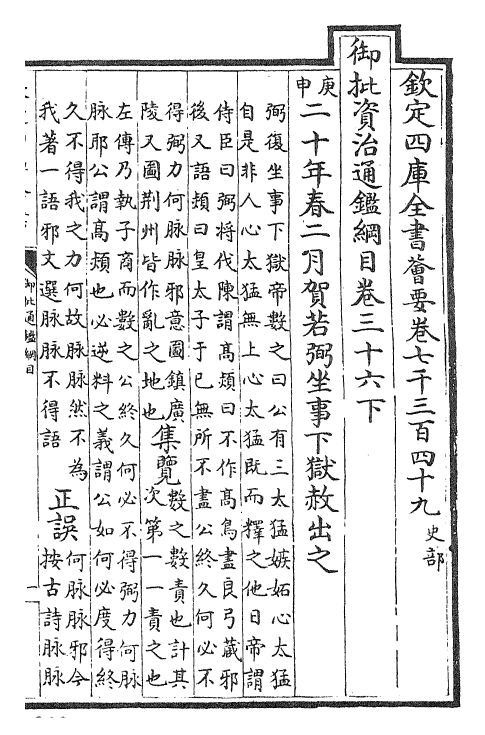 欽定四庫全書薈要卷七千三百四十九 史部
御批資治通鑑綱目卷三十六下
庚申 二十年春二月賀若弼坐事下獄赦出之
弼復坐事下獄帝數之曰公有三太猛嫉妬心太猛
自是非人心太猛無上心太猛既而釋之他日帝謂
侍臣曰弼將伐陳謂髙熲曰不作髙鳥盡良弓藏邪
後又語熲曰皇太子于已無所不盡公終久何必不
得弼力何脉脉邪意圖鎮廣
陵又圖荆州皆作亂之地也
集覽
數之數責也計其
次第一一責之也
左傳乃執子商而數之公終久何必不得弼力何脉
脉耶公謂髙熲也必逆料之義謂公如何必度得終
久不得我之力何故脉脉然不為
我著一語邪文選脉脉不得語
正誤
何脉脉邪今
按古詩脉脉
御批通鑑綱目
一